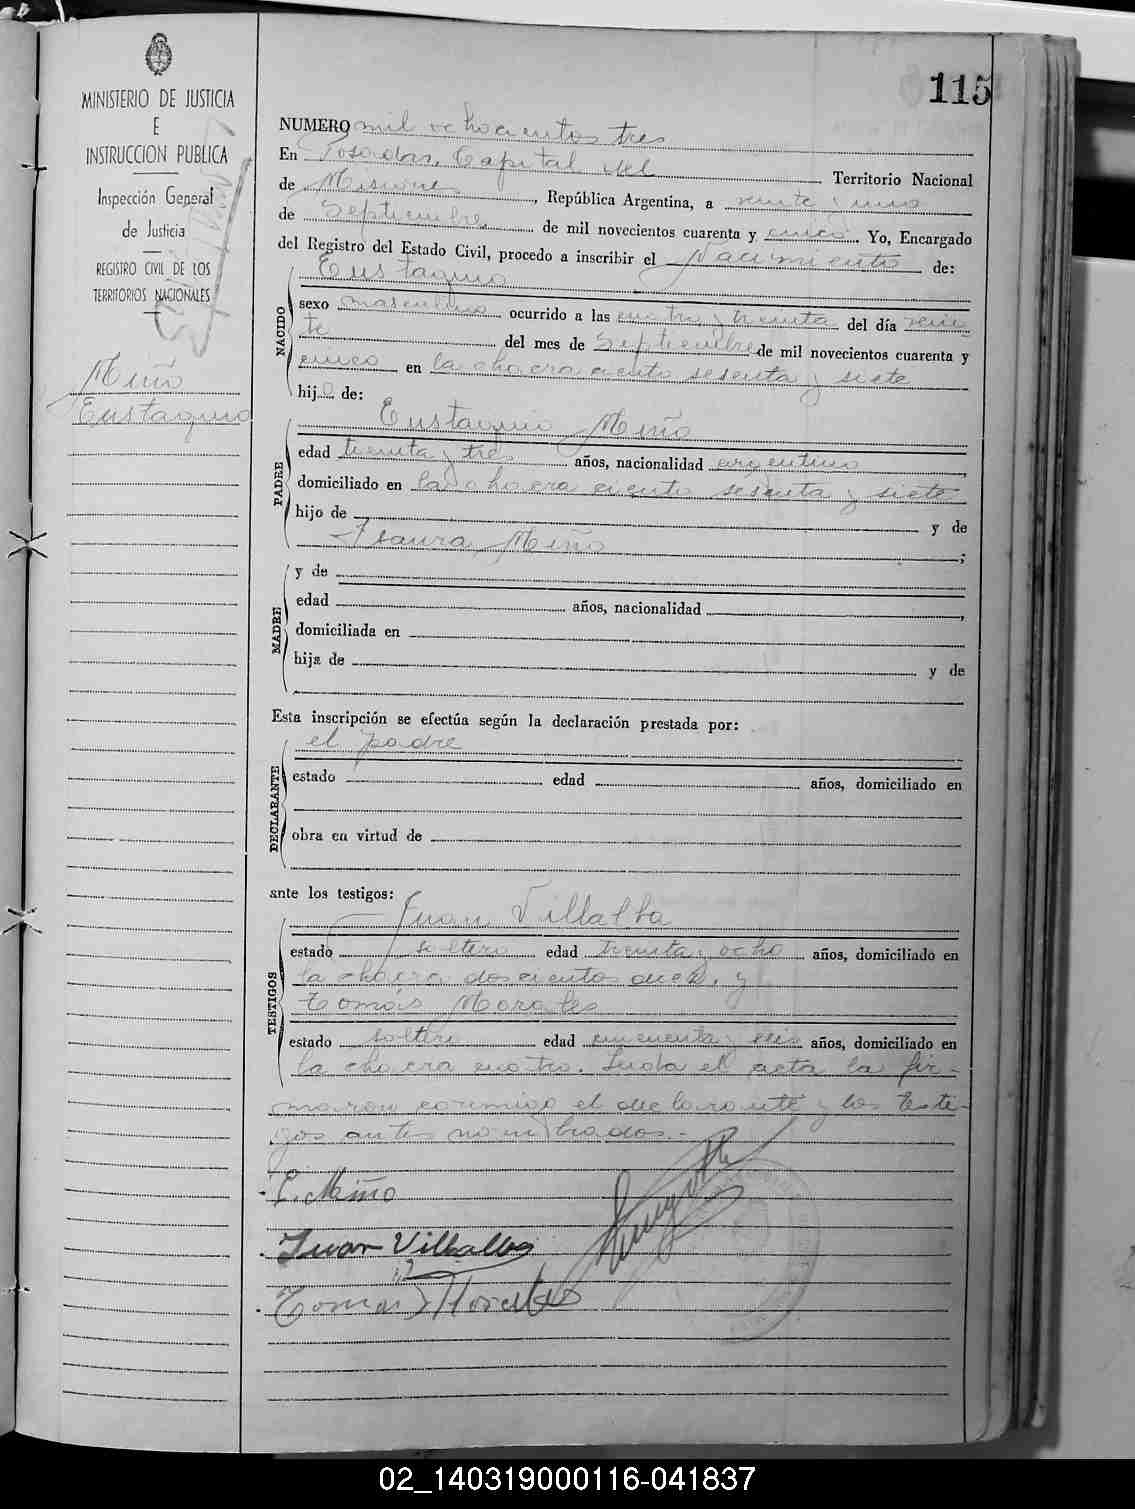 115
MINISTERIO DE JUSTICIA
E
INSTRUCCION PUBLICA
Inspección General
de Justicia
REGISTRO CIVIL DE LOS
TERRITORIOS NACIONALES
Miño
Eustaquio
NUMERO mil ochocientos tres
En Posadas, Capital del Territorio Nacional
de Misiones, República Argentina, a veinte y uno
de Septiembre de mil novecientos cuarenta y cinco. Yo, Encargado
del Registro del Estado Civil, procedo a inscribir el Nacimiento de:
Eustaquio
NACIDO
sexo masculino ocurrido a las cuatro y treinta del día vein
te del mes de Septiembre de mil novecientos cuarenta y
cinco en la chacra ciento sesenta y siete
hijo de:
Eustaquio Miño
PADRE
edad treinta y tres años, nacionalidad argentino,
domiciliado en la chacra ciento sesenta y siete
hijo de y de
Isaura Miño;
MADRE
y de
edad años, nacionalidad,
domiciliada en
hija de y de
Esta inscripción se efectúa según la declaración prestada por:
el padre
DECLARANTE
estado edad años, domiciliado en
obra en virtud de
ante los testigos:
Juan Villalba
TESTIGOS
estado soltero edad treinta y ocho años, domiciliado en
la chacra doscientos doce, y
Tomás Morales
estado soltero edad cincuenta y seis años, domiciliado en
la chacra cuatro. Leida el acta la fir-
maron conmigo el declarante y los testi-
gos antes nombrados.-
E. Miño
Juan Villalba
Tomas Morales
02_140319000116-041837